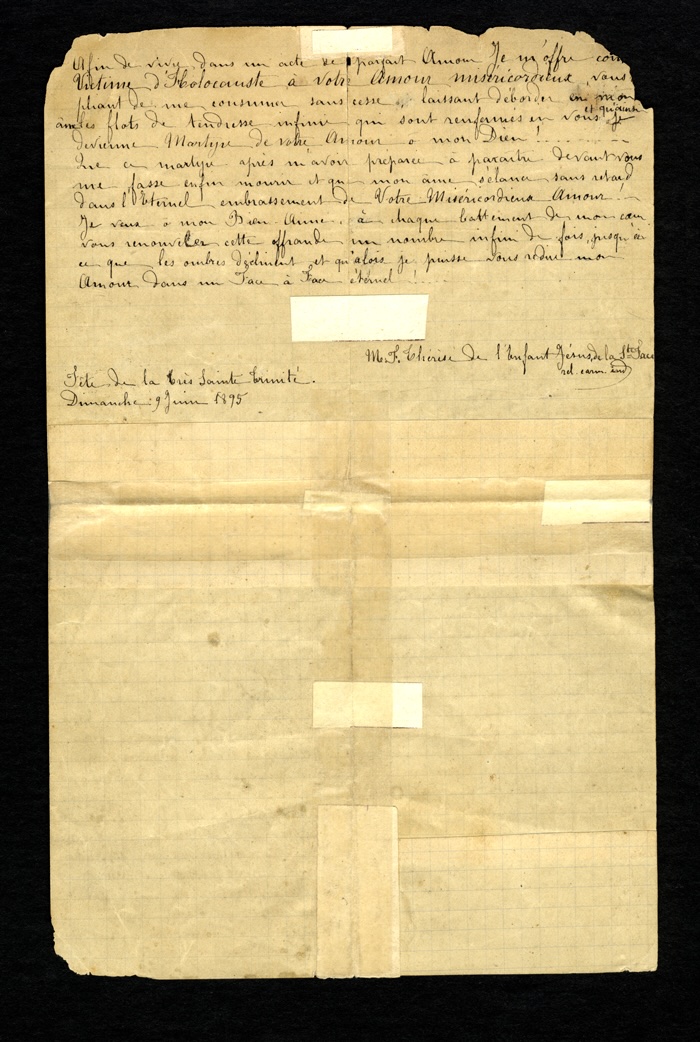 Afin de vivre dans un acte de parfait Amour Je m'offre com
Victime d'Holocauste à votre Amour miséricordieux, vous
pliant de me consumer sans cesse, laissant déborder en mon
âme les flots de tendresse infinie qui sont renfermés en vous et qu'ainsi Je
devienne Martyre de votre Amour ô mon Dieu!....
Que ce martyre après m'avoir préparée à paraître devant vous
me fasse enfin mourir et que mon âme s'élance sans retard
dans l'Eternel embrassement de Votre Miséricordieux Amour!..
Je veux ô mon Bien-Aimé, à chaque battement de mon cœur
vous renouveler cette offrande un nombre infini de fois, jusqu'à
ce que les ombres déclinent et qu'alors je puisse vous redire mon
Amour dans un Face à Face éternel!....
M. F. Thérèse de l'Enfant Jésus de la Ste Face
rel. carm. ind
Fête de la très Sainte trinité.
Dimanche 9 Juin 1895